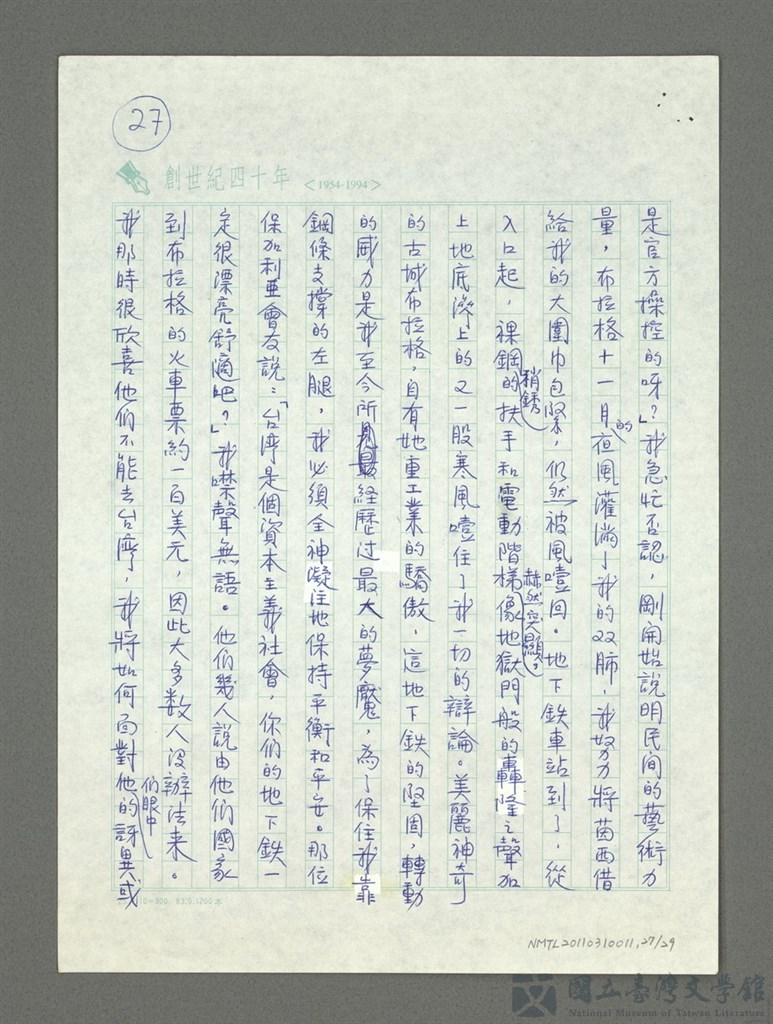 27
創世紀四十年 <1954-1994>
是官方操控的呀?」我急忙否認,剛開始說明民間的藝術力
量,布拉格十一月的夜風灌滿了我的双肺,我努力將茵西借
給我的大圍巾包緊,仍然被風噎回。地下鉄車站到了,從
入口起,裸鋼稍銹的扶手和電動階梯赫然突顯了像地獄門般的轟隆之聲加
上地底滲上的又一股寒風噎住了我一切的辯論。美麗神奇
的古城布拉格,自有她重工業的驕傲,這地下鉄的堅固,轉動
的威力是我至今所經歷过最大的夢魘,為了保住我靠
鋼條支撐的左腿,我必須全神凝注地保持平衡和平安。那位
保加利亜會友說:「台湾是個資本主義社會,你们的地下鉄一
定很漂亮舒適吧?」我噤聲無語。他们幾人說由他们國家
到布拉格的火車票約一百美元,因此大多数人没辦法来。
我那時很欣喜他们不能去台湾,我將如何面對他们眼中的訝異或
10=300. 83.9.1200本
NMTL20110310011,27/29
國立臺灣文學館
National Museum of Taiwan Literature